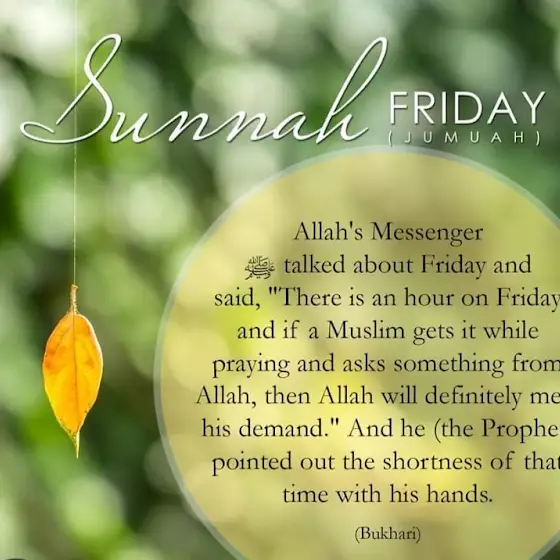 Sunnah FRIDAY
(JUMUAH)
Allah's Messenger
ﷺ talked about Friday and
said, "There is an hour on Friday
and if a Muslim gets it while
praying and asks something from
Allah, then Allah will definitely me
his demand." And he (the Prophe
pointed out the shortness of that
time with his hands.
(Bukhari)